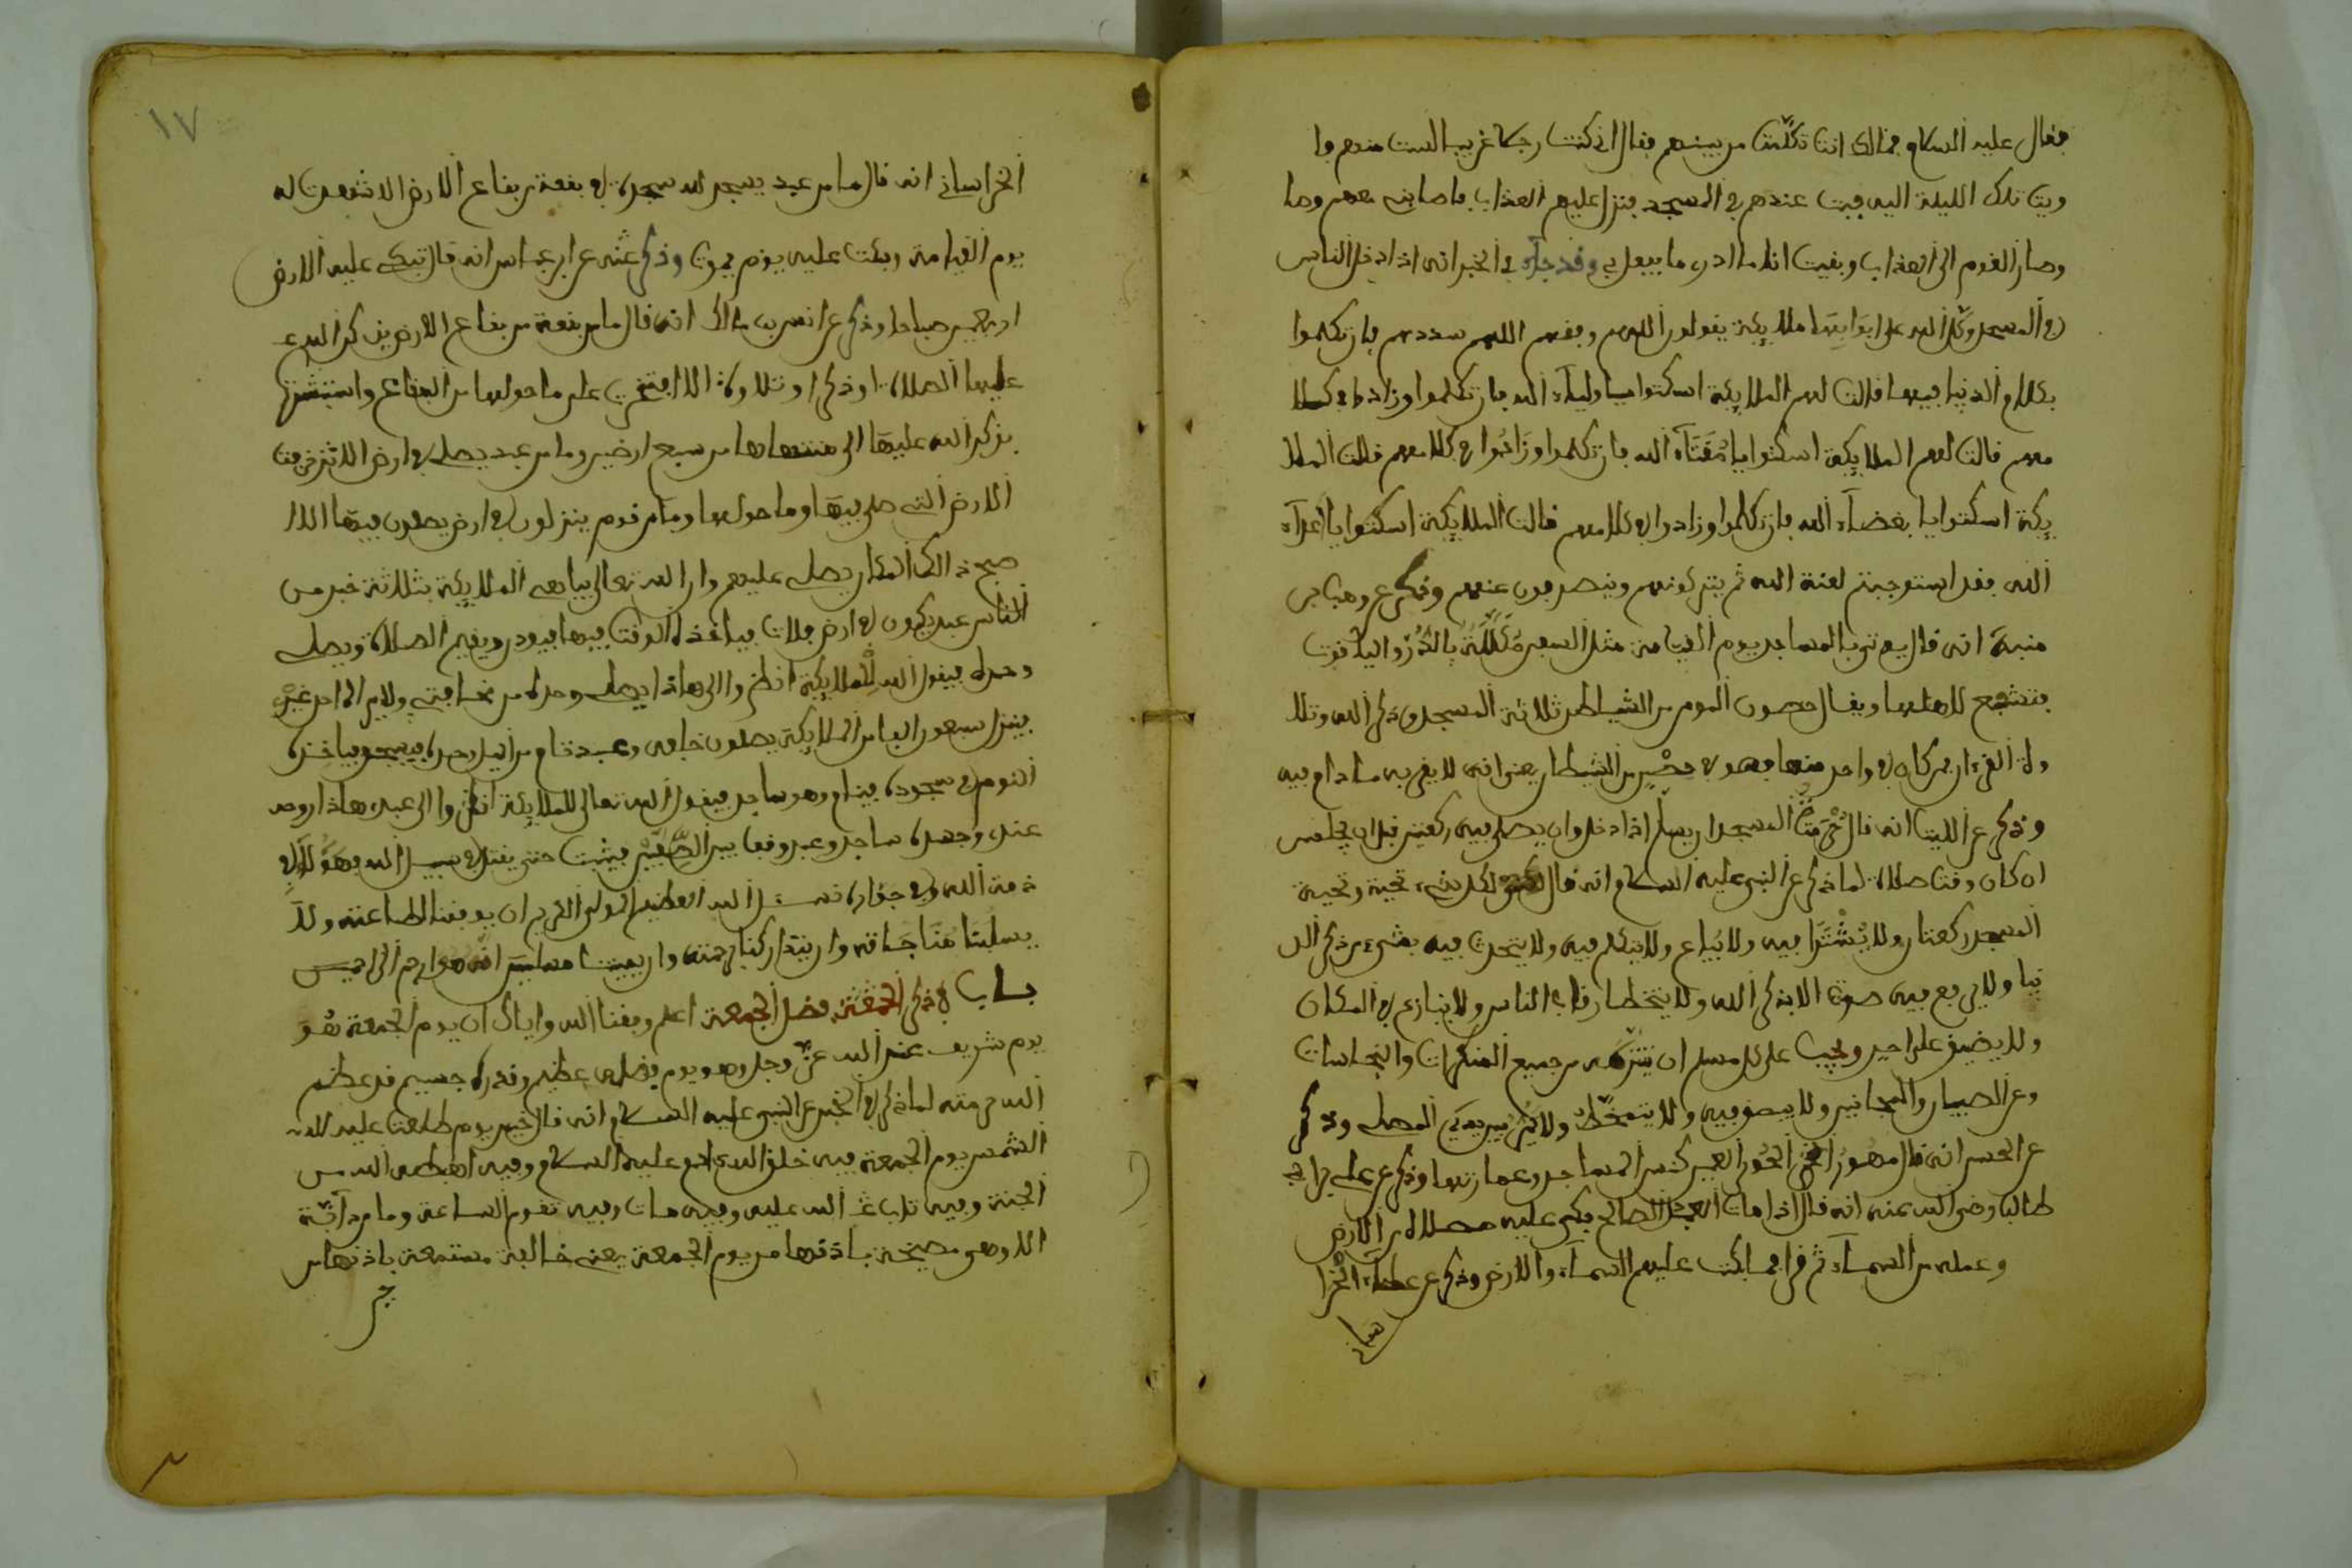 فقال عليه السلام فمالك انت تكلمت من بينهم فقال اني كنت رجلا غريبا لست منهم وا
ويت تلك الليلة اليهم فبت عندهم في المسجد فنزل عليهم العذاب فاصابني معهم وصا
وصار القوم الى العذاب وبقيت انا ما ادري ما يفعل بي وقد جاء في الخبر انه اذا دخل الناس
في المسجد وكل الله على ابوابها ملايكة يقولون اللهم وفقهم اللهم سددهم فان تكلموا
بكلام الدنيا فيها قالت لهم الملايكة اسكتوا يا اولياء الله فان تكلموا وزادوا في كلا
مهم قالت لهم الملايكة اسكتوا يا مقتاء الله فان تكلموا وزادوا في كلامهم قالت الملا
يكة اسكتوا يا بغضاء الله فان تكلموا وزادوا في كلامهم قالت الملايكة اسكتوا يا اعداء
الله فقد استوجبتم لعنة الله ثم يتركونهم وينصرفون عنهم وذكر عن وهب بن
منبه انه قال يوتى بالمساجد يوم القيامة مثل السفن مكللة بالدر والياقوت
فتشفع لاهلها ويقال حصون المومن من الشيطان ثلاثة المسجد وذكر الله وتلا
وة القرءان من كان في واحد منها فهو في حصن من الشيطان يعني انه لا يقربه ما دام فيه
وذكر عن الليث انه قال حرمة المسجد ان يسلم اذا دخل وان يصلي فيه ركعتين قبل ان يجلس
ان كان وقت صلاة لما ذكر عن النبي عليه السلام انه قال لكل شيء تحية وتحية
المسجد ركعتان ولا يشترا فيه ولا يباع ولا يتكلم فيه ولا يتحدث فيه بشيء من ذكر الد
نيا ولا يرفع فيه صوت الا بذكر الله ولا يتخطا رقاب الناس ولا ينازع في المكان
ولا يضيق على احد ويجب على كل مسلم ان ينزهه من جميع المنكرات والنجاسات
وعن الصبيان والمجانين ولا يبصق فيه ولا يتمخط ولا يمر بين يدي المصلي وذكر
عن الحسن انه قال مهور الحور العين كنس المساجد وعمارتها وذكر عن علي بن ابي
طالب رضي الله عنه انه قال اذا مات العبد الصالح بكى عليه مصلاه من الارض
وعمله من السماء ثم قرا فما بكت عليهم السماء والارض وذكر عن عطاء الخرا
ساني
١٧
الخراساني انه قال ما من عبد يسجد لله سجدة في بقعة من بقاع الارض الا شهدت له
يوم القيامة وبكت عليه يوم يموت وذكر عن ابن عباس انه قال تبكي عليه الارض
اربعين صباحا وذكر عن انس بن مالك انه قال ما من بقعة من بقاع الارض يذكر الله
عليها الصلاة او ذكرا او تلاوة الا افتخرت على ما حولها من البقاع واستبشرت
بذكر الله عليها الى منتهاها من سبع ارضين وما من عبد يصلي في ارض الا تزخرفت
الارض التي صلى فيها وما حولها وما من قوم ينزلون في ارض يصلون فيها الا ا
صبح ذالك المكان يصلي عليهم وان الله تعالى يباهي الملايكة بثلاثة نفر من
الناس عبد يكون في ارض فلات فياخذه الوقت فيها فيوذن ويقيم الصلاة ويصلي
وحده فيقول الله للملايكة انظروا الى هاذا يصلي وحده من مخافتي ولا يراه احد غيري
فينزل سبعون الفا من الملايكة يصلون خلفه وعبد قام من اليل وحده فيسجد فياخذه
النوم في سجوده فينام وهو ساجد فيقول الله تعالى للملايكة انظروا الى عبدي هاذا روحه
عندي وجسده ساجد وعبد وقف بين الصفين فيثبت حتى يقتل في سبيل الله فهؤلاء في
ذمة الله وفي جواره نسئل الله العظيم المولى الكريم ان يوفقنا لطاعته ولا
يسلبنا مناجاته وان يتداركنا برحمته وان يميتنا مسلمين انه هو ارحم الراحمين
باب في ذكر الجمعة وفضل الجمعة اعلم وفقنا الله واياك ان يوم الجمعة هو
يوم شريف عند الله عز وجل وهو يوم فضله عظيم وقدره جسيم قد عظم
الله حرمته لما ذكر في الخبر عن النبي عليه السلام انه قال خير يوم طلعت عليه
الشمس يوم الجمعة فيه خلق الله ادم عليه السلام وفيه اهبطه الله من
الجنة وفيه تاب الله عليه وفيه مات وفيه تقوم الساعة وما من دابة
الا وهي مصيخة باذنها من يوم الجمعة يعني مستمعة باذنها من